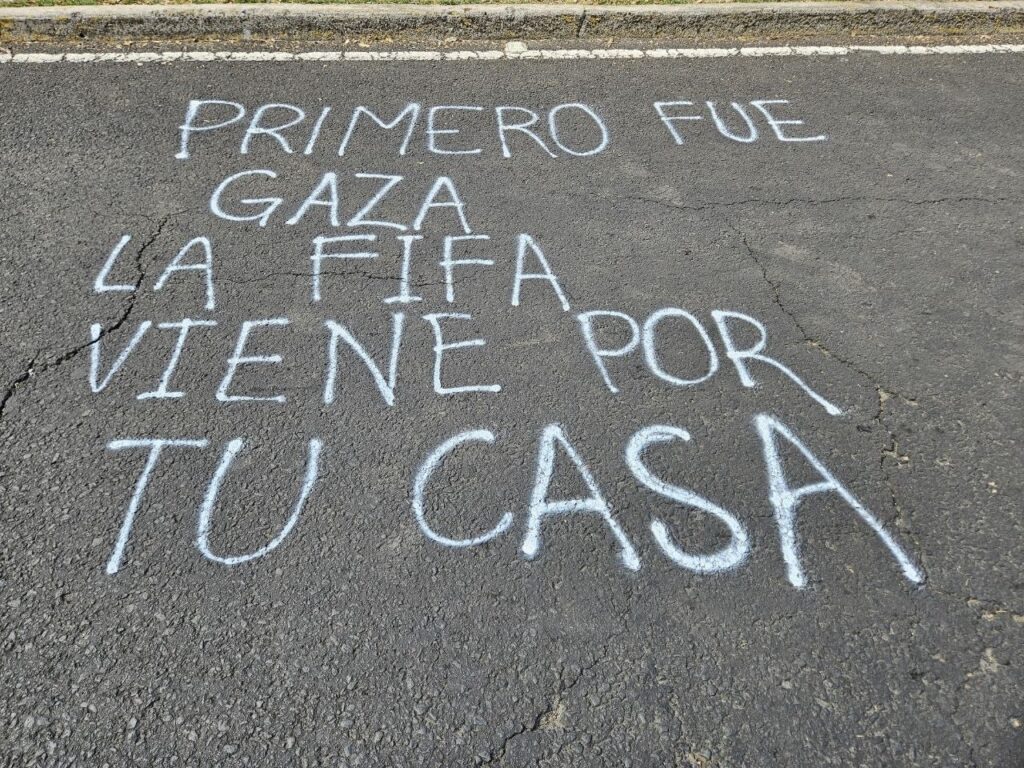 PRIMERO FUE
GAZA
LA FIFA
VIENE POR
TU CASA